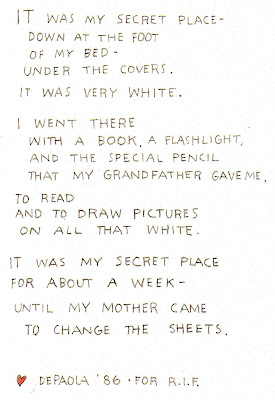 IT WAS MY SECRET PLACE-
DOWN AT THE FOOT
OF MY BED-
UNDER THE COVERS.
IT WAS VERY WHITE.
I WENT THERE
WITH A BOOK, A FLASHLIGHT,
AND THE SPECIAL PENCIL
THAT MY GRANDFATHER GAVE ME.
TO READ
AND TO DRAW PICTURES
ON ALL THAT WHITE.
IT WAS MY SECRET PLACE
FOR ABOUT A WEEK-
UNTIL MY MOTHER CAME
TO CHANGE THE SHEETS.
♥ DEPAOLA '86 · FOR R.I.F.